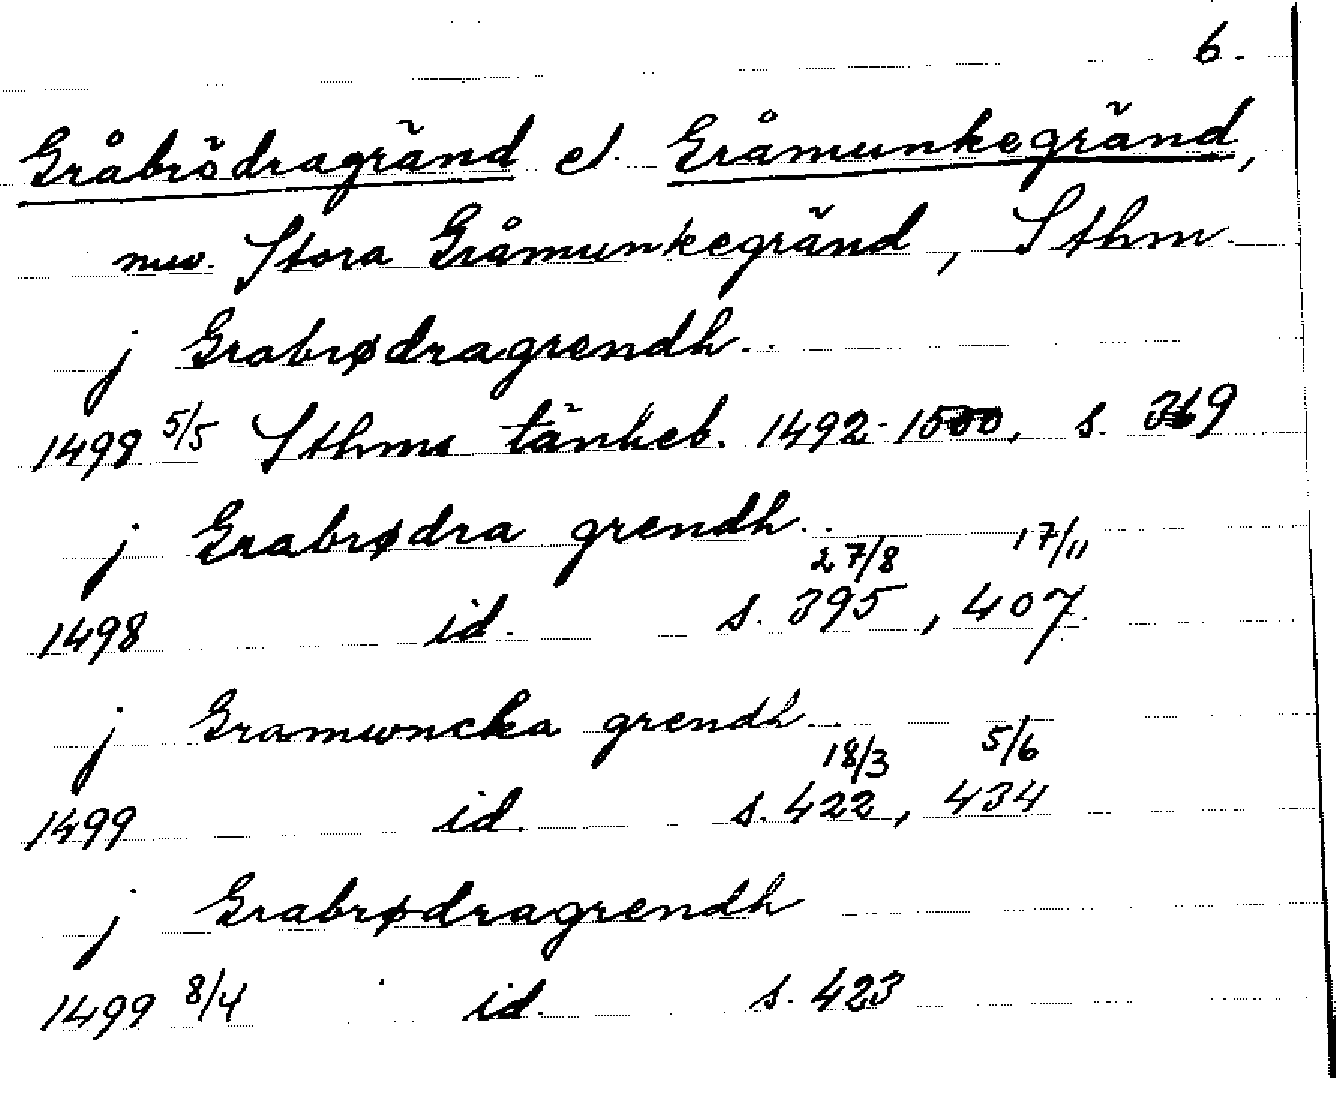 6.
Gråbrödragränd el. Gråmunkegränd,
nuv. Stora Gråmunkegränd, Sthm
j Grabrødragrendh
1498 5/5 Sthms tänkeb. 1492-1500, s. 369
j Grabrødra grendh
27/8 17/11
1498 id. s. 395, 407
j Gramwncka grendh
18/3 5/6
1499 id. s. 422, 434
j Grabrødragrendh
1499 8/4 id. s. 423